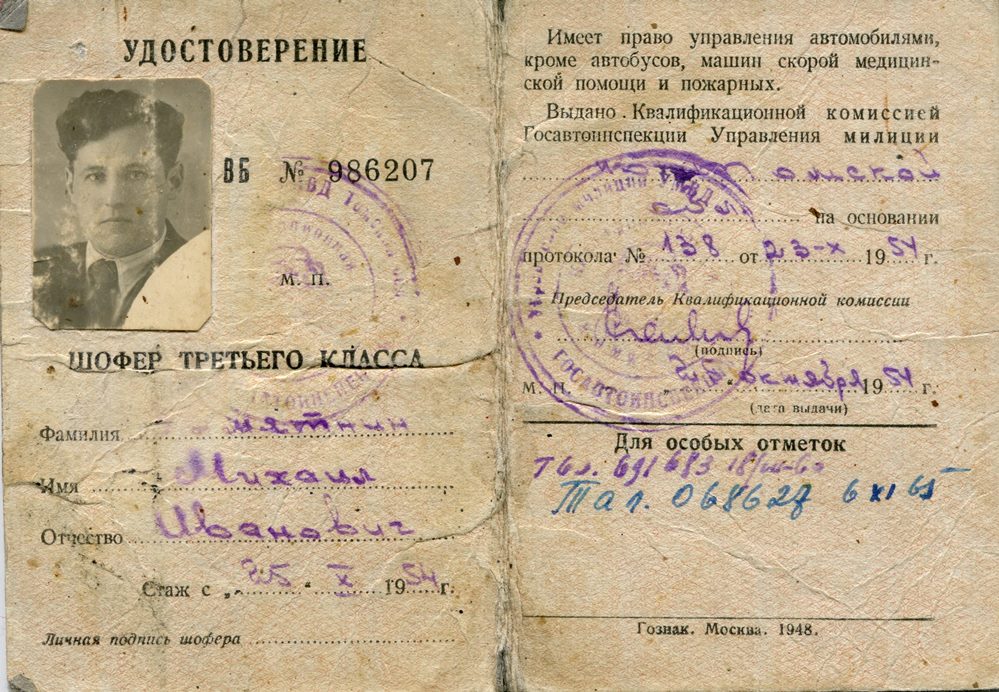 УДОСТОВЕРЕНИЕ
ВБ № 986207
М. П.
ШОФЕР ТРЕТЬЕГО КЛАССА
Фамилия
Имя Михаил
Отчество Иванович
Стаж с „25“ X 1954 г.
Личная подпись шофера
Имеет право управления автомобилями,
кроме автобусов, машин скорой медицин-
ской помощи и пожарных.
Выдано Квалификационной комиссией
Госавтоинспекции Управления милиции
на основании
протокола № 138 от 23-X 1954 г.
Председатель Квалификационной комиссии
(подпись)
М. П. октября 1954 г.
(дата выдачи)
ГОСАВТОИНСПЕКЦИЯ
Для особых отметок
Тал. 691683
Тал. 068627 6 XI 65
Гознак. Москва. 1948.